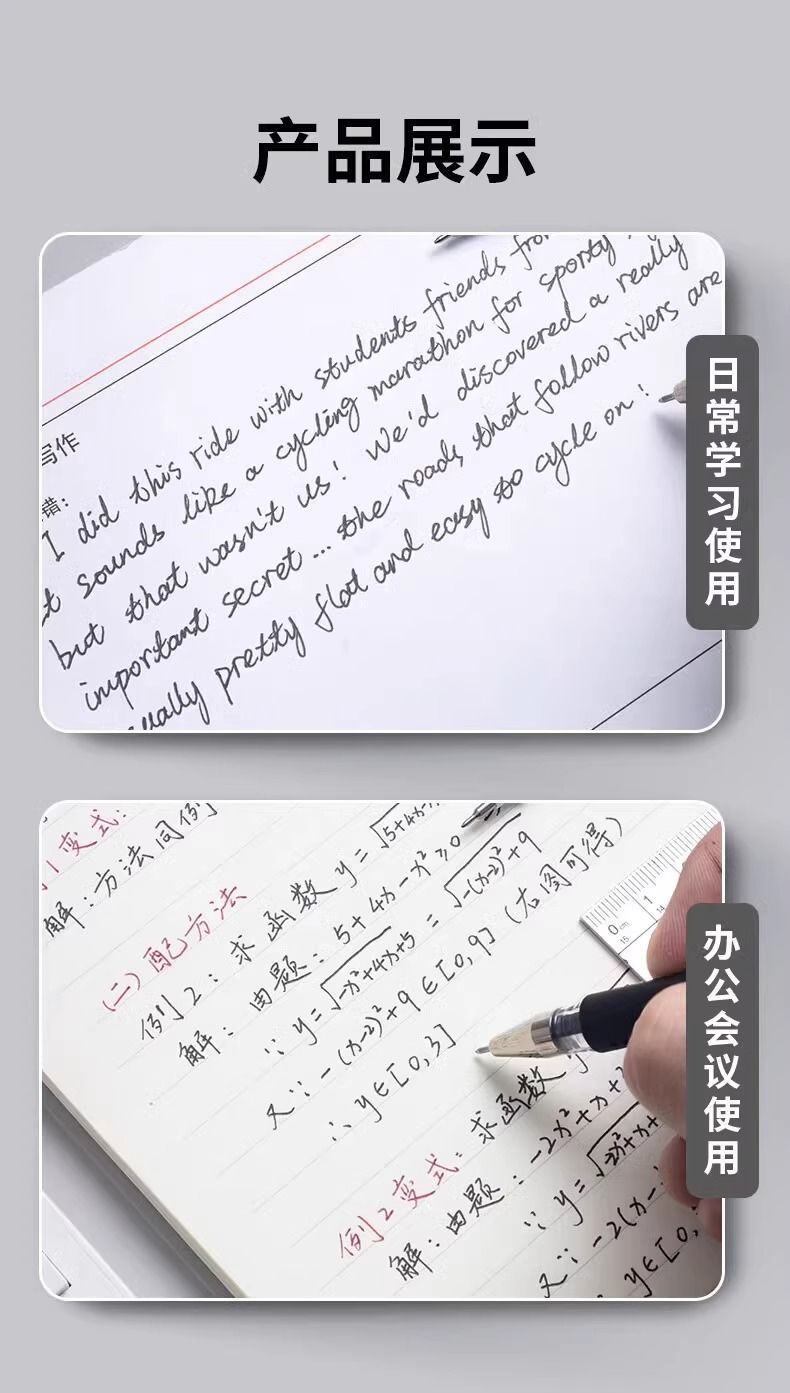 产品展示
写作
错：
I did this ride with students friends from
t sounds like a cycling marathon for sporty
but that wasn't us! We'd discovered a really
important secret... the roads that follow rivers are
ually pretty flat and easy to cycle on!
日常学习使用
1变式：
解：方法同例
(二) 配方法
例2：求函数y=√5+4x-x
解：由题：5+4x-x²≥0
∵y=√-x²+4x+5=√-(x-2)²+9
又∵-(x-2)²+9∈[0,9] (右图可得)
∴y∈[0,3]
例2变式：求函数y
解：由题：-2x²+x+
∵y=√2x²+x+
又∵-2(x-
∴y∈[0,
0cm 1
15 14
办公会议使用